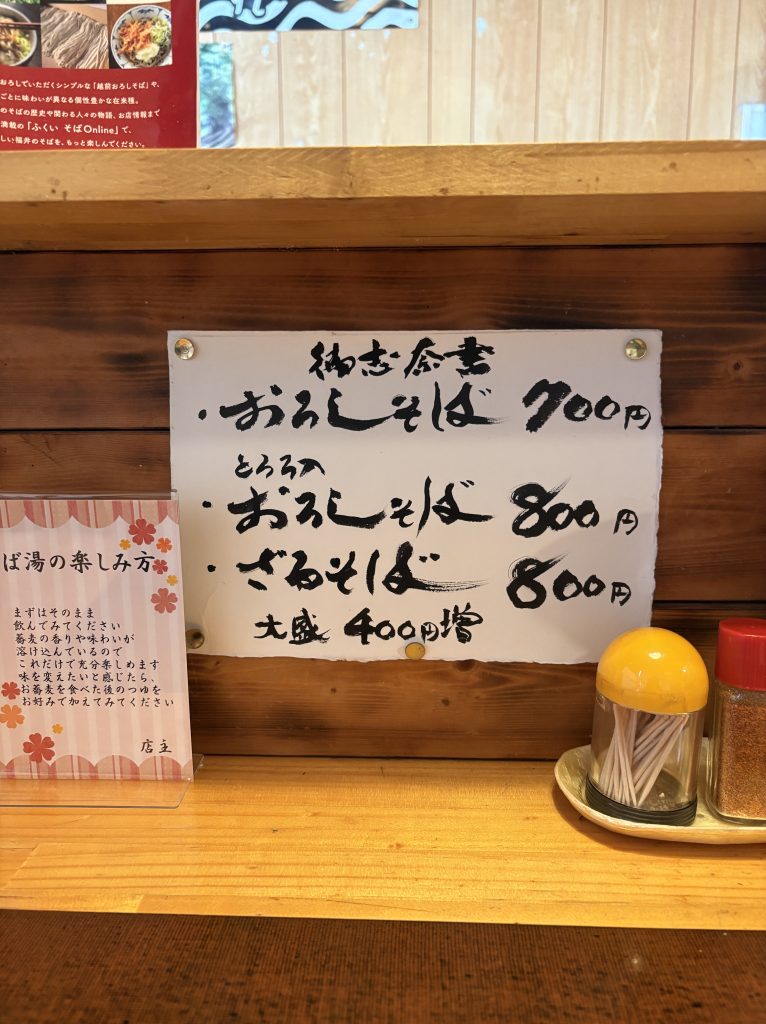 おろしていただくシンプルな「越前おろしそば」や、
ごとに味わいが異なる個性豊かな在来種。
のそばの歴史や関わる人々の物語、お店情報まで
満載の「ふくい そばOnline」で、
しい福井のそばを、もっと楽しんでください。
御志奈書
・おろしそば 700円
とろろ入
・おろしそば 800円
・ざるそば 800円
大盛 400円増
ば湯の楽しみ方
まずはそのまま
飲んでみてください
蕎麦の香りや味わいが
溶け込んでいるので
これだけで充分楽しめます
味を変えたいと感じたら、
お蕎麦を食べた後のつゆを
お好みで加えてみてください
店主